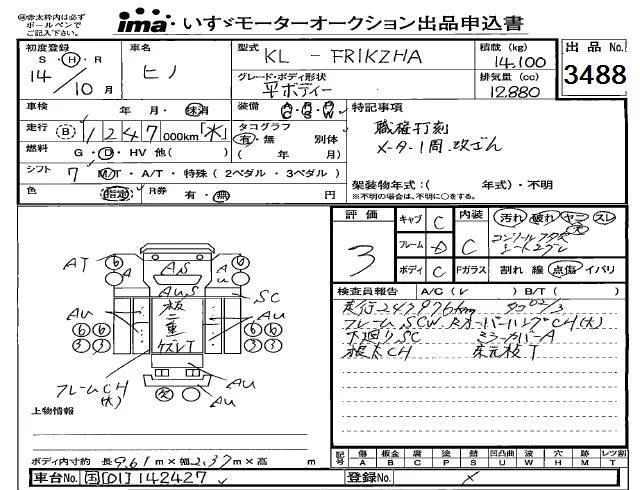 ㊟赤太枠内は必ず
ボールペンで
ご記入下さい。
ima いすゞモーターオークション出品申込書
初度登録 S・H・R 14/10月
車名 ヒノ
型式 KL-FR1KZHA
積載 (kg) 14,100
出品No. 3488
グレード・ボディ形状 平ボディー
排気量 (cc) 12,880
車検 年 月・抹消
装備 A/C P/S P/W
特記事項
走行 B 1247 000km「水」
タコグラフ 有・無 別体
( 年 月)
職権打刻
メーター1周、改ざん
燃料 G・D・HV 他( )
シフト 7 M/T・A/T・特殊(2ペダル・3ペダル)
架装物年式:( 年式)・不明
※不明の場合は、不明に○をする。
色 指定 R券 有・無 円
評価 3
キャブ C
フレーム D
ボディ C
内装 C
汚れ 破れ ヤニ スレ
Fガラス 割れ 線 点傷 イバリ
検査員報告 A/C( レ ) B/T( )
走行247976km タコ02/3
フレームSCW. R.オーバーハングCH(大)
下廻りSC ミラーカバーA
根太CH 床元板T
AT
6
A
AS
A
u
6
AuS
SC
Au
板
二
重
ケズレT
Au
6 6
3 3
6 6
3 3
フレームCH
(大)
AU
AU
上物情報
ボディ内寸約 長9.61m×幅2.37m×高 m
記号 傷A 板金B 腐C 塗P 錆S 凹凸曲U 波W 穴H 跡M レツ割T
車台No. 国[01]142427
登録No.